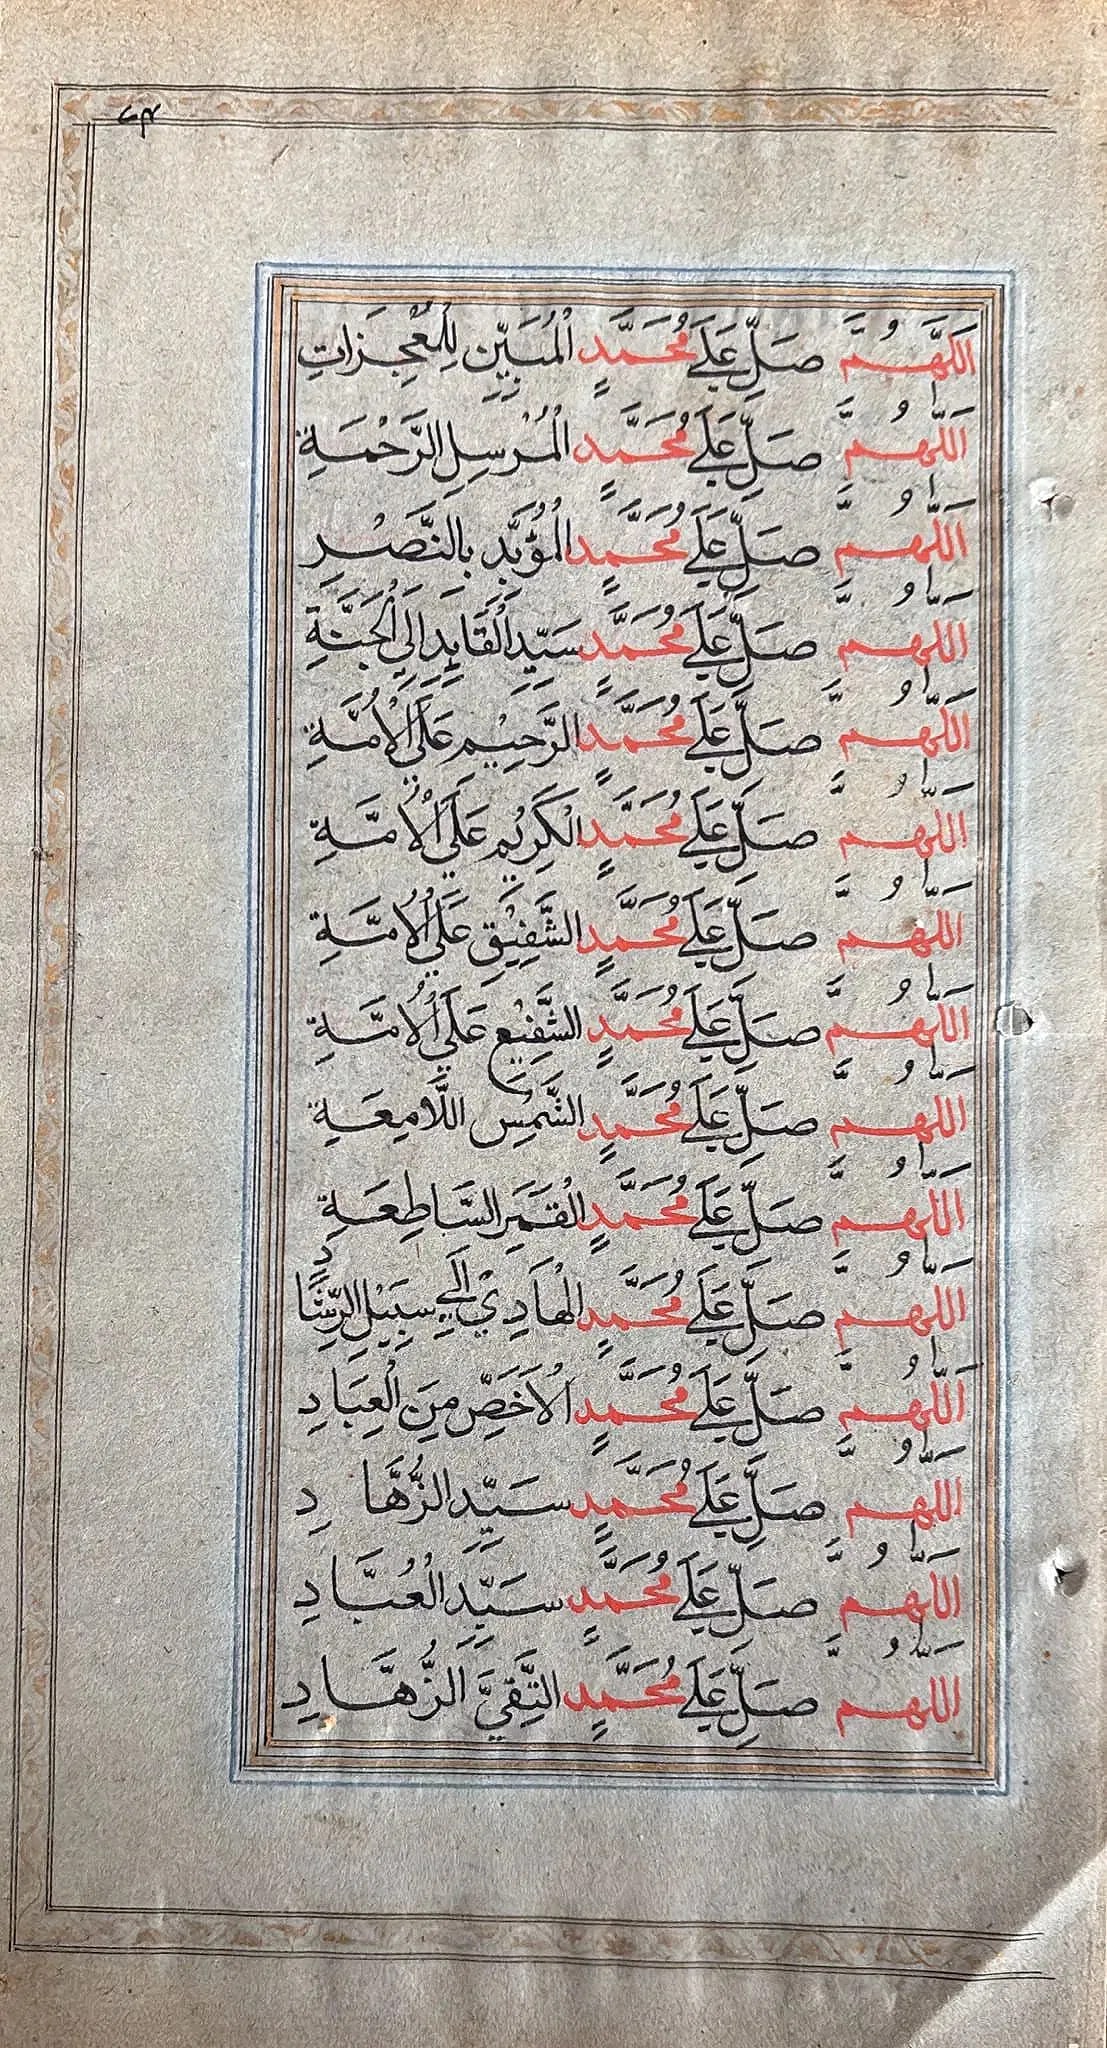 اَللّٰهُمَّ صَلِّ عَلَىٰ مُحَمَّدٍ الْمُبَيِّنِ لِلْمُعْجِزَاتِ
اَللّٰهُمَّ صَلِّ عَلَىٰ مُحَمَّدٍ الْمُرْسِلِ الرَّحْمَةِ
اَللّٰهُمَّ صَلِّ عَلَىٰ مُحَمَّدٍ الْمُؤَيَّدِ بِالنَّصْرِ
اَللّٰهُمَّ صَلِّ عَلَىٰ مُحَمَّدٍ سَيِّدِ الْقَايِدِ اِلَي الْجَنَّةِ
اَللّٰهُمَّ صَلِّ عَلَىٰ مُحَمَّدٍ الرَّحِيْمِ عَلَي الْاُمَّةِ
اَللّٰهُمَّ صَلِّ عَلَىٰ مُحَمَّدٍ الْكَرِيْمِ عَلَي الْاُمَّةِ
اَللّٰهُمَّ صَلِّ عَلَىٰ مُحَمَّدٍ الشَّفِيْقِ عَلَي الْاُمَّةِ
اَللّٰهُمَّ صَلِّ عَلَىٰ مُحَمَّدٍ الشَّفِيْعِ عَلَي الْاُمَّةِ
اَللّٰهُمَّ صَلِّ عَلَىٰ مُحَمَّدٍ الشَّمْسِ اللَّامِعَةِ
اَللّٰهُمَّ صَلِّ عَلَىٰ مُحَمَّدٍ الْقَمَرِ السَّاطِعَةِ
اَللّٰهُمَّ صَلِّ عَلَىٰ مُحَمَّدٍ الْهَادِيْ اِلَي سَبِيْلِ الرَّشَّادِ
اَللّٰهُمَّ صَلِّ عَلَىٰ مُحَمَّدٍ الْاَخَصِّ مِنَ الْعِبَادِ
اَللّٰهُمَّ صَلِّ عَلَىٰ مُحَمَّدٍ سَيِّدِ الزُّهَّادِ
اَللّٰهُمَّ صَلِّ عَلَىٰ مُحَمَّدٍ سَيِّدِ الْعُبَّادِ
اَللّٰهُمَّ صَلِّ عَلَىٰ مُحَمَّدٍ التَّقِيَّ الزُّهَّادِ